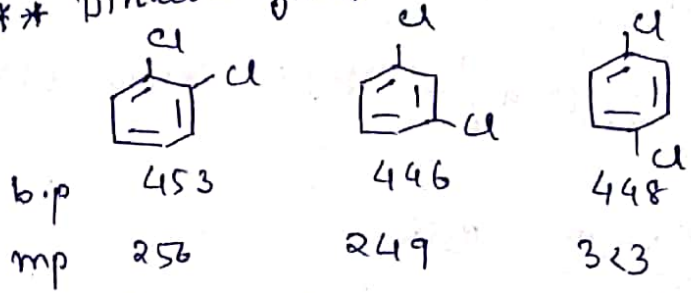 **
Cl Cl Cl
Cl Cl
Cl
b.p 453 446 448
mp 256 249 323